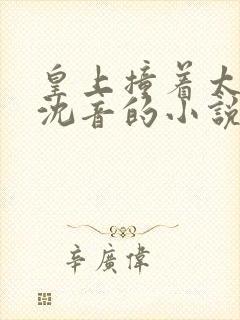 皇上撞着太
沈音的小說
辛廣偉